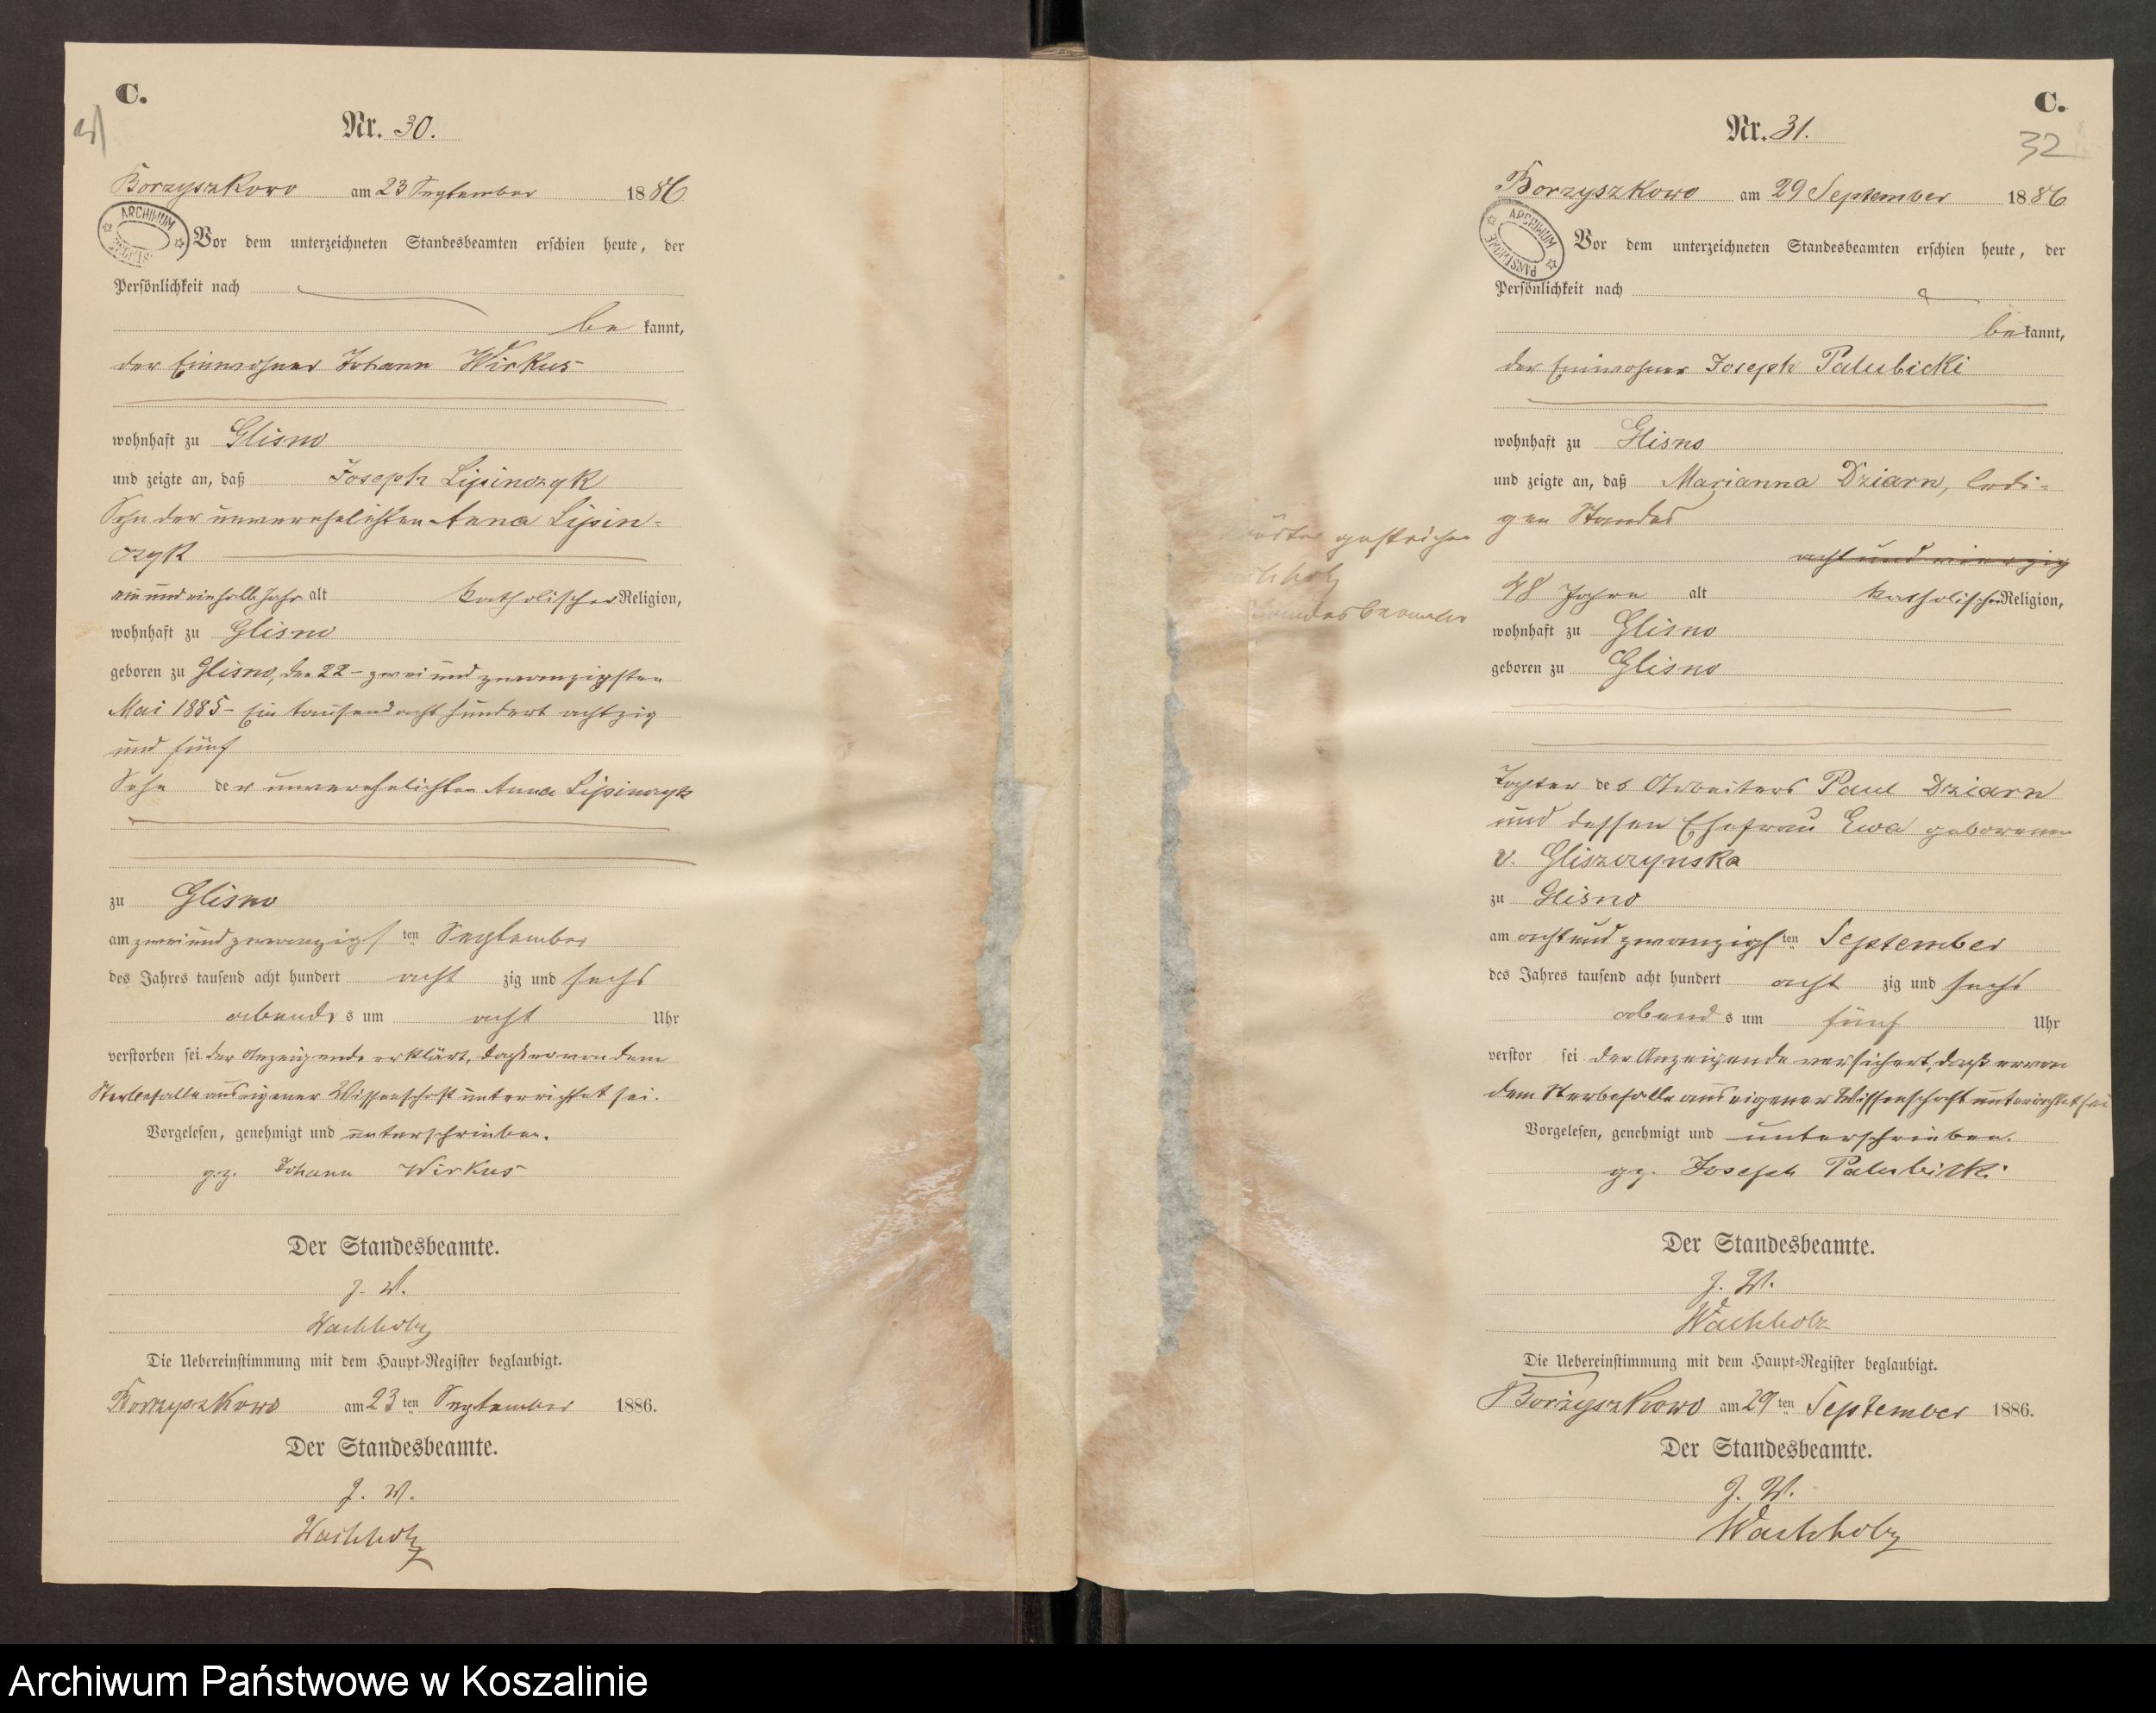 C.
Nr. 30.
Borzyszkowo am 23 September 1886
ARCHIWUM
Vor dem unterzeichneten Standesbeamten erschien heute, der
Persönlichkeit nach
be kannt,
der Einwohner Johann Wirkus
wohnhaft zu Glisno
und zeigte an, daß Joseph Lipinczyk
Sohn der unverehelichten Anna Lipin-
czyk
ein und einhalb Jahr alt katholischer Religion,
wohnhaft zu Glisno
geboren zu Glisno, den 22 - zwei und zwanzigsten
Mai 1885 - Ein tausend acht hundert achtzig
und fünf
Sohn der unverehelichten Anna Lipinczyk
zu Glisno
am zwei und zwanzigsten September
des Jahres tausend acht hundert acht zig und sechs
abends um acht Uhr
verstorben sei. der Anzeigende erklärt, daß er von dem
Sterbefalle aus eigener Wissenschaft unterrichtet sei.
Vorgelesen, genehmigt und unterschrieben.
gz. Johann Wirkus
Der Standesbeamte.
J. V.
Wachholz
Die Uebereinstimmung mit dem Haupt-Register beglaubigt.
Borzyszkowo am 23 ten September 1886.
Der Standesbeamte.
J. V.
Wachholz
C.
32
Nr. 31.
Borzyszkowo am 29 September 1886
ARCHIWUM PAŃSTWOWE
Vor dem unterzeichneten Standesbeamten erschien heute, der
Persönlichkeit nach
be kannt,
der Einwohner Joseph Palubicki
wohnhaft zu Glisno
und zeigte an, daß Marianna Dziarn, ledi-
gen Standes
gestrichen
acht und vierzig
48 Jahre alt katholischer Religion,
Standesbeamter
wohnhaft zu Glisno
geboren zu Glisno
Tochter des Arbeiters Paul Dziarn
und dessen Ehefrau Ewa geborenen
v. Gliszczynska
zu Glisno
am acht und zwanzigsten September
des Jahres tausend acht hundert acht zig und sechs
abends um fünf Uhr
verstor sei. der Anzeigende versichert, daß er von
dem Sterbefalle aus eigener Wissenschaft unterrichtet sei
Vorgelesen, genehmigt und unterschrieben.
gz. Joseph Palubicki
Der Standesbeamte.
J. V.
Wachholz
Die Uebereinstimmung mit dem Haupt-Register beglaubigt.
Borzyszkowo am 29 ten September 1886.
Der Standesbeamte.
J. V.
Wachholz
Archiwum Państwowe w Koszalinie